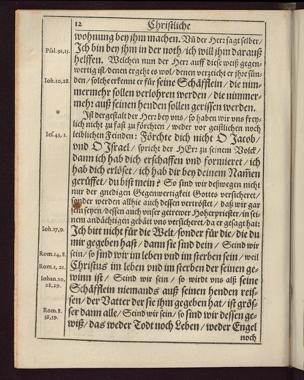 12
Christliche
wohnung bey ihm machen. Uñ der Herr sagt selber/
Psal. 91, 15.
Ich bin bey ihm in der noth/ ich will ihm darauß
helffen. Welchen nun der Herr auff diese weiß gegen-
wertig ist/ denen ergeht es wol/ denen verzeiht er ihre sün-
Ioh. 10, 28.
den/ solche erkennt er für seine Schäfflein/ die nim-
mermehr sollen verlohren werden/ die nimmer-
mehr auß seinen henden sollen gerissen werden.
Ist dergestalt der Herr bey uns/ so haben wir uns frey-
lich nicht zu fast zu förchten/ weder vor geistlichen noch
Ies. 43, 1.
leiblichen Feinden: Förchte dich nicht O Jacob/
und O Israel/ spricht der HErr zu seinem Volck/
dann ich hab dich erschaffen und formieret/ ich
hab dich erlöset/ ich hab dir bey deinem Namen
gerüffet/ du bist mein: So sind wir deßwegen nicht
nur der gnedigen Gegenwertigkeit Gottes versicheret/
sonder werden allhie auch dessen vertröstet/ daß wir gar
sein seyen/ dessen auch unser getrewer Hoherpriester/ in sei-
nem andächtigen gebätt uns versicheret/ da er gesagt hat:
Ioh. 17, 9.
Ich bitt nicht für die Welt/ sonder für die/ die du
mir gegeben hast/ dann sie sind dein/ Seind wir
Rom. 14, 8.
sein/ so sind wir im leben und im sterben sein/ weil
Rom. 1, 21.
Christus im leben und im sterben der seinen ge-
Iohan. 10,
winn ist/ Seind wir sein/ so wirdt uns alß seine
28, 29.
Schäflein niemands auß seinen henden reis-
sen/ der Vatter der sie ihm gegeben hat/ ist grös-
Rom. 8.
ser dann alle/ Seind wir sein/ so sind wir dessen ge-
38, 39.
wiß/ das weder Todt noch Leben/ weder Engel
noch